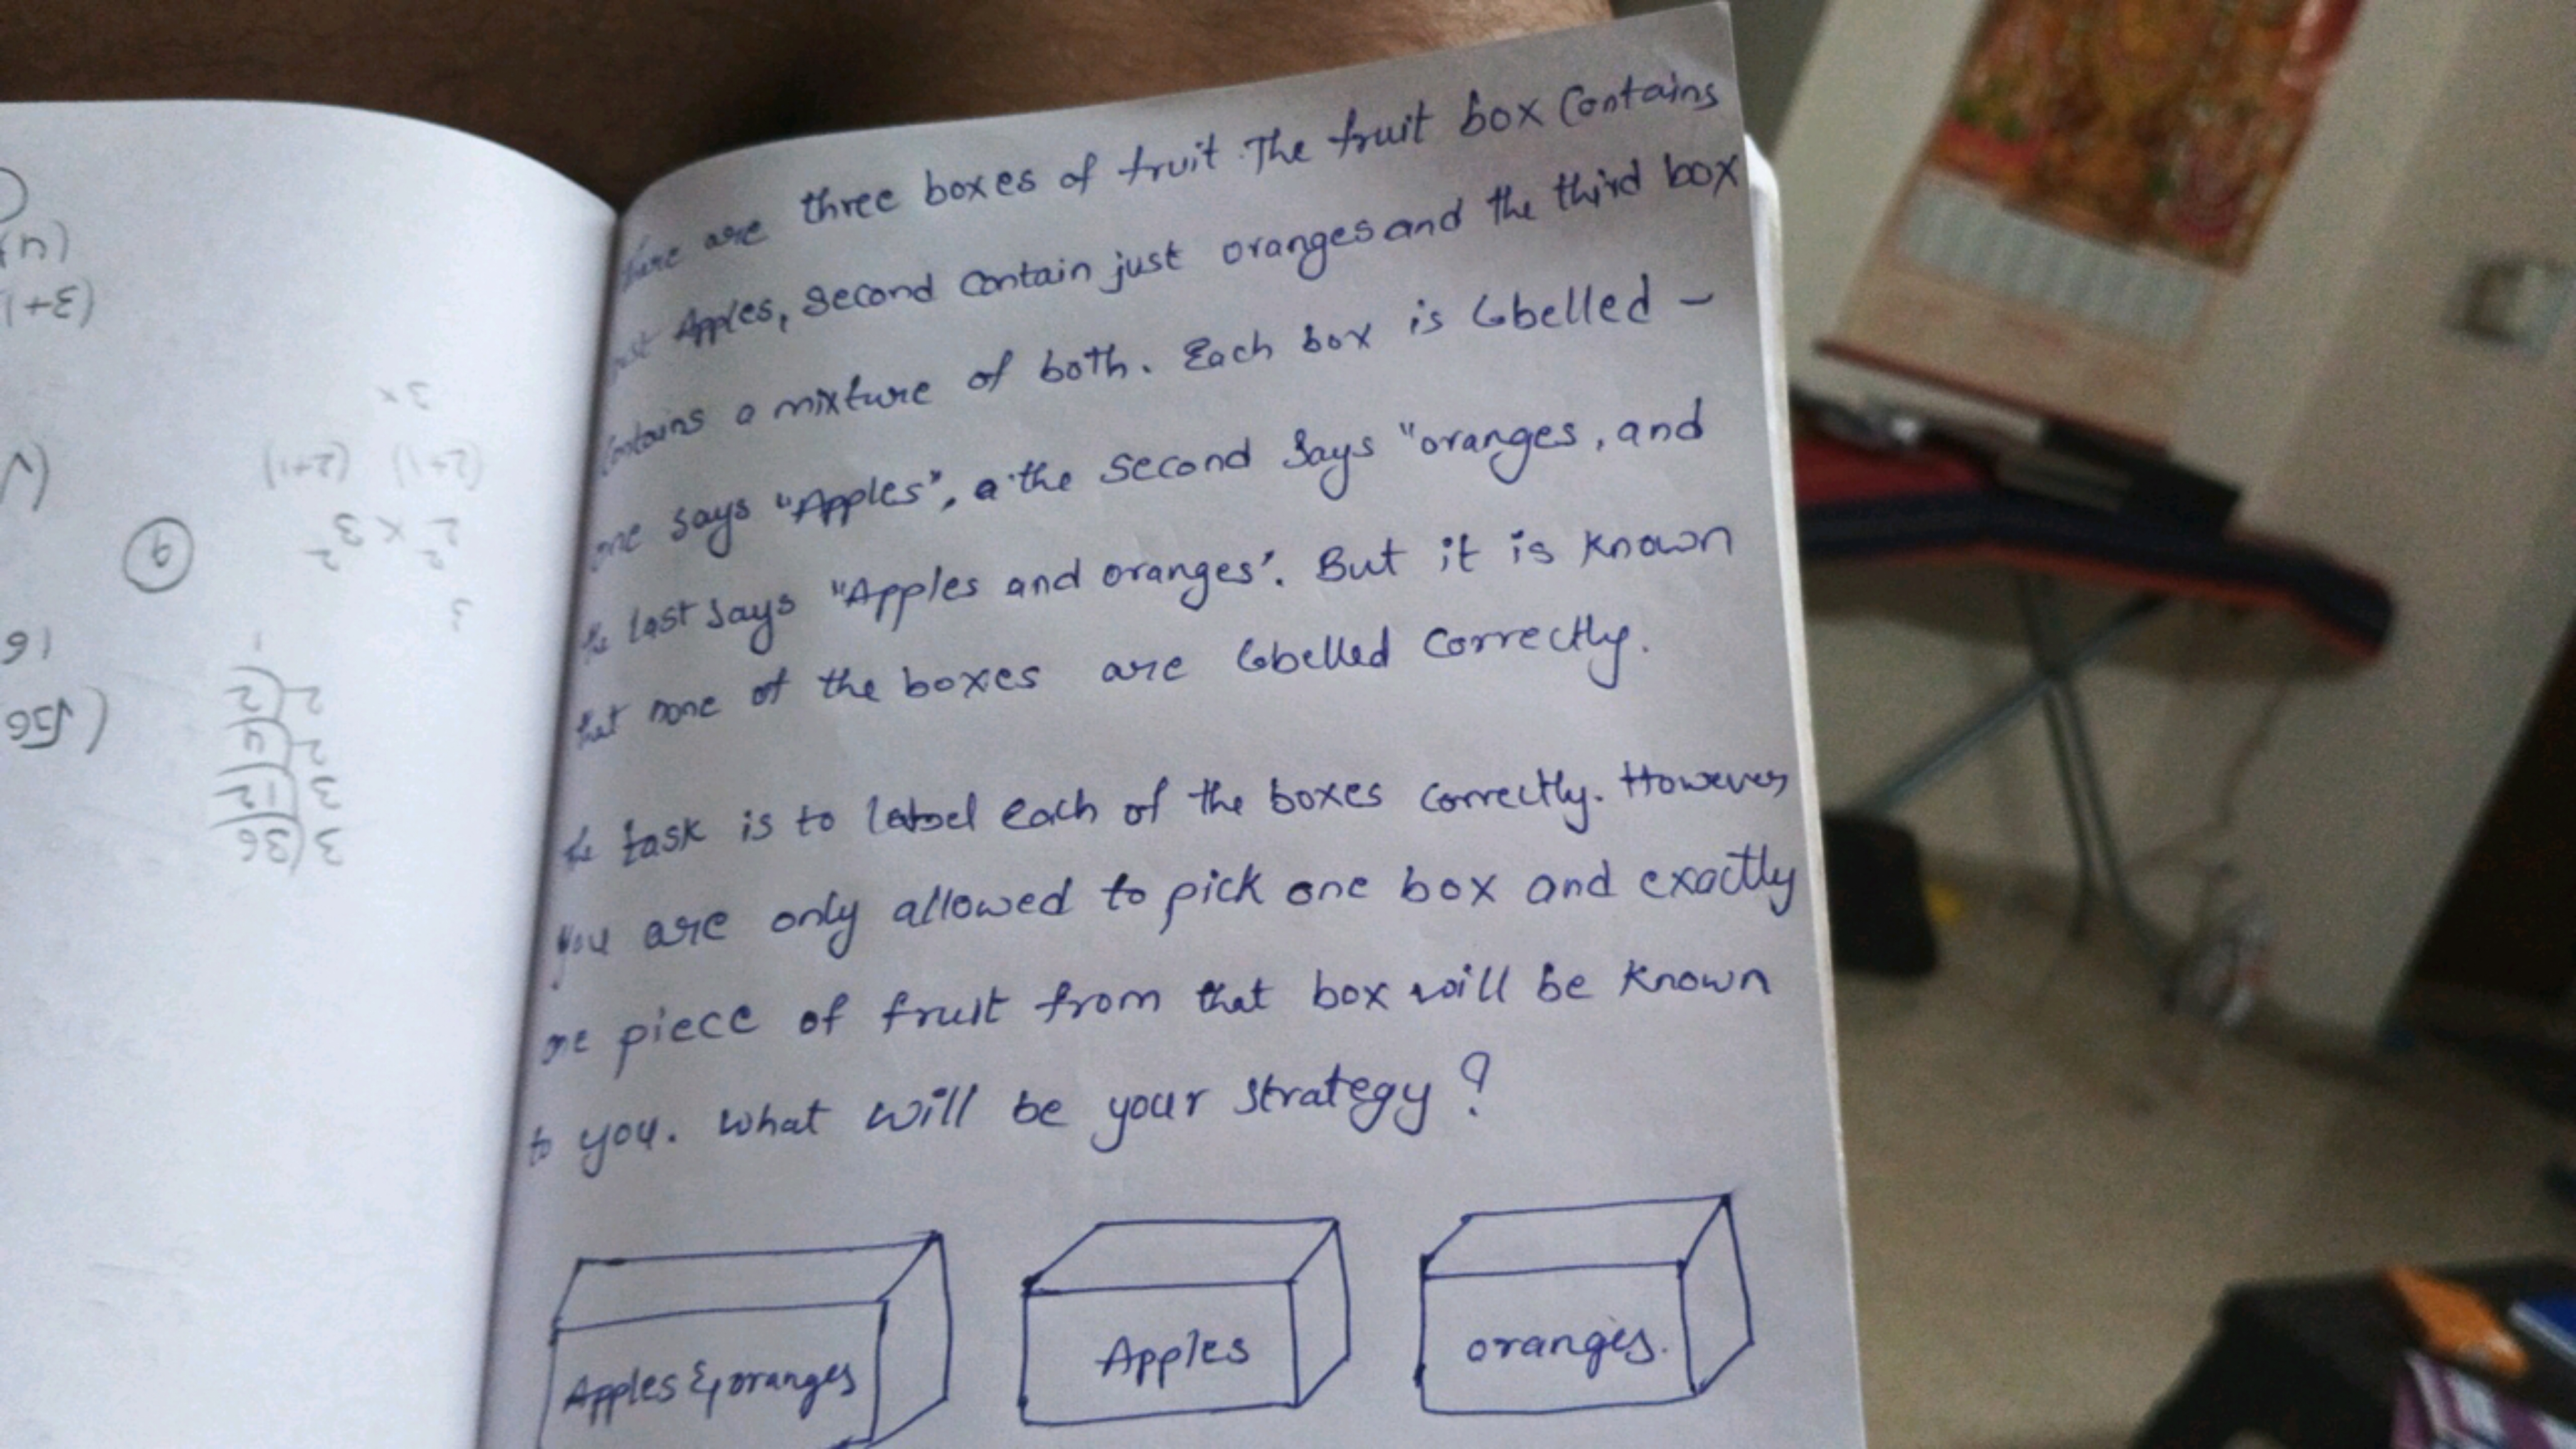 are three boxes of fruit. The fruit box Contains
Apples, Second Contain just oranges and the third box
Contains a mixture of both. Each box is labelled -
one says "Apples", a the second Says "oranges, and
the last says "Apples and oranges'. But it is known
that none of the boxes are labelled correctly.
the task is to label each of the boxes correctly. However
you are only allowed to pick one box and exactly
one piece of fruit from that box will be known
to you. What will be your strategy?
Apples & oranges
Apples
oranges.
3x
(2+1) (2+1)
2² × 3²
9
3
1
2(2
2(4
3(12
3(36
(3+1
16
(√36